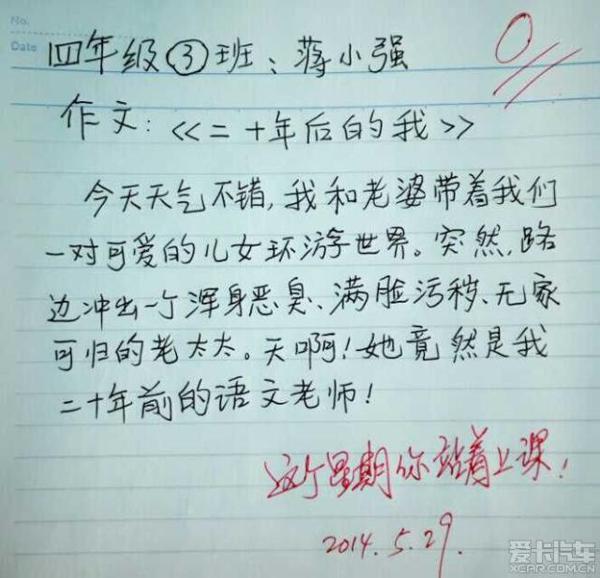 No.
Date
0
四年级③班：蒋小强
作文：《二十年后的我》
今天天气不错，我和老婆带着我们
一对可爱的儿女环游世界。突然，路
边冲出一个浑身恶臭、满脸污秽、无家
可归的老太太。天啊！她竟然是我
二十年前的语文老师！
这个星期你站着上课！
2014.5.29.
爱卡汽车
XCAR.COM.CN